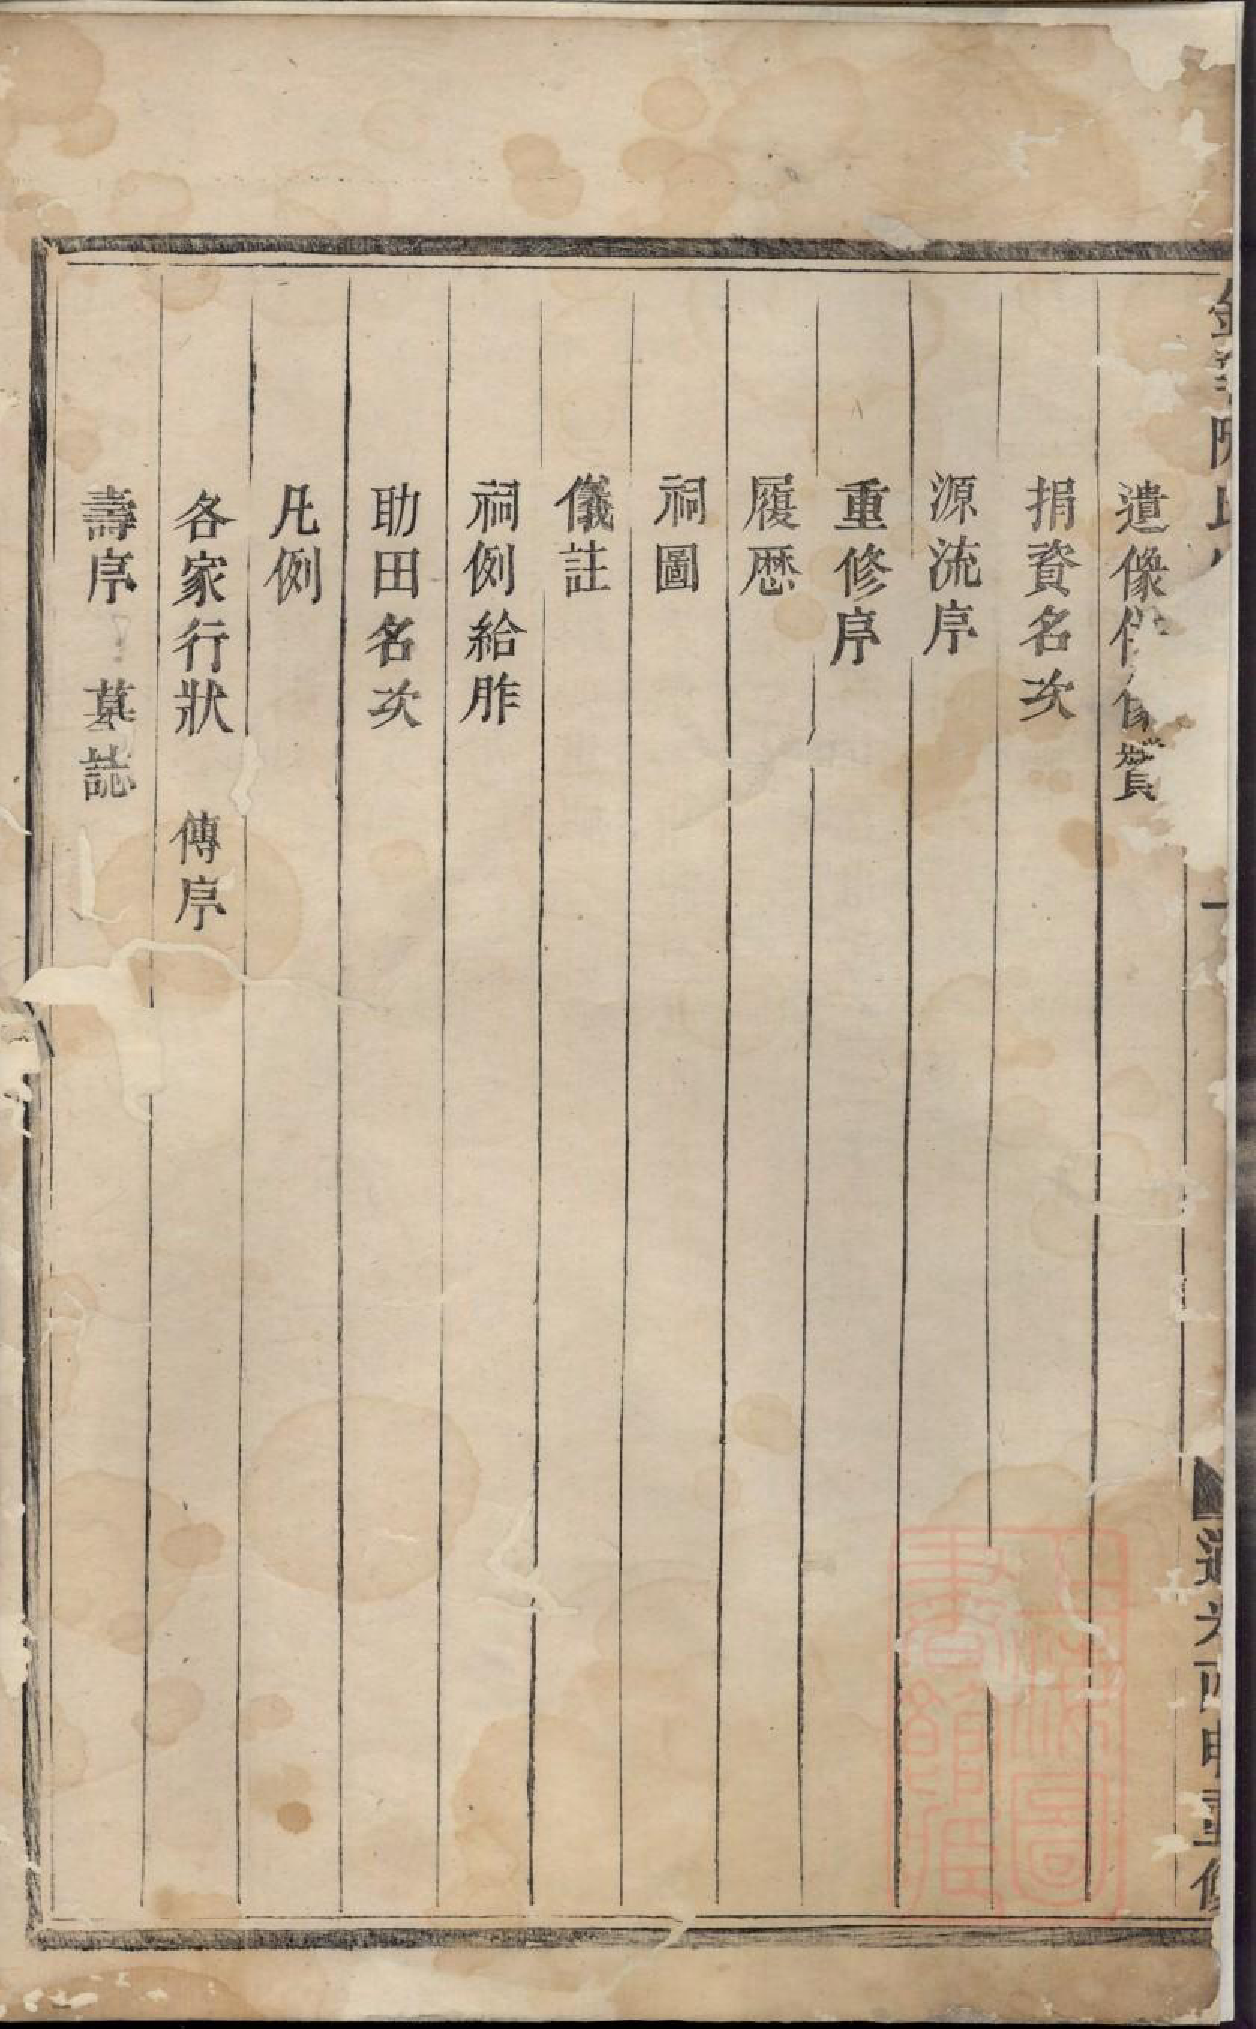 陳氏
一
道光丙申重修
遺像 像贊
捐資名次
源流序
重修序
履歷
祠圖
儀註
祠例給胙
助田名次
凡例
各家行狀 傳序
壽序 墓誌
上海圖書館藏